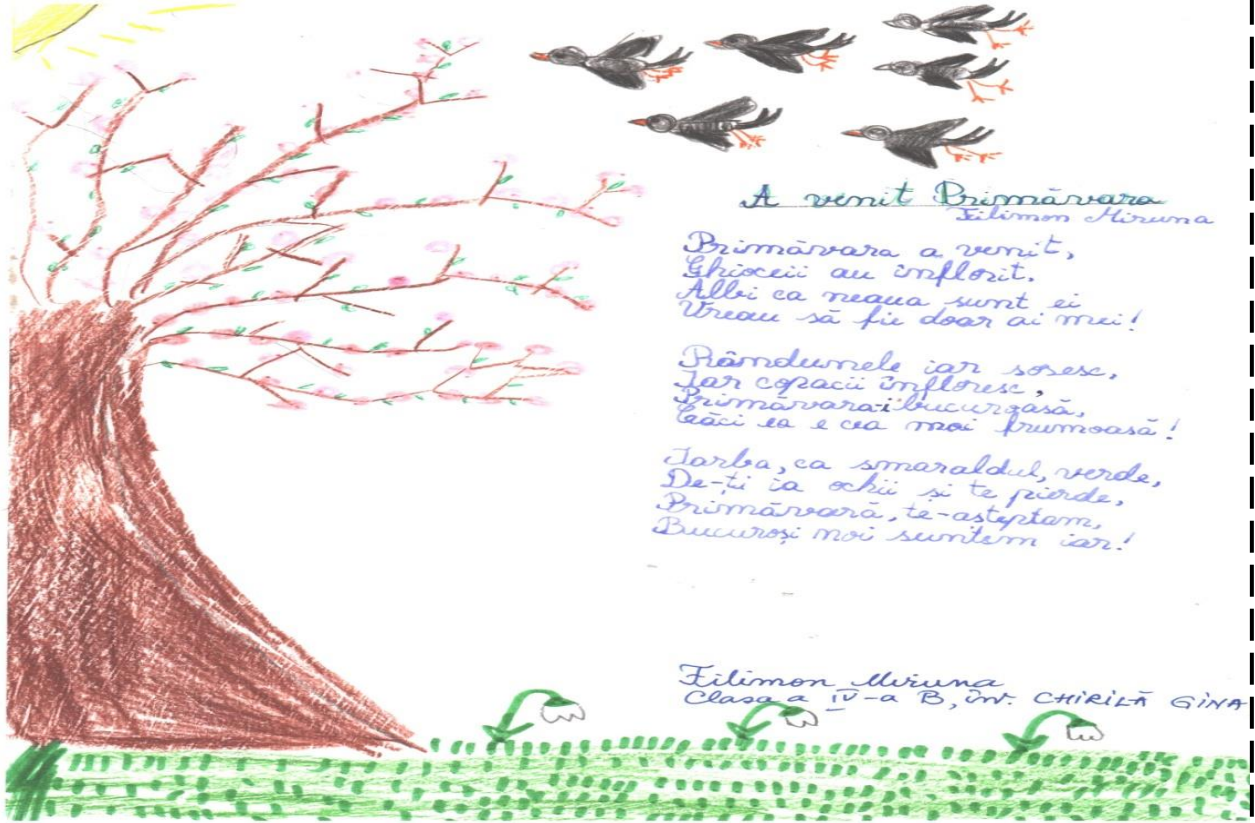 A venit Primăvara
Filimon Miruna
Primăvara a venit,
Ghioceii au înflorit.
Albi ca neaua sunt ei
Vreau să fie doar ai mei!
Rândunele iar sosesc,
Iar copacii înfloresc,
Primăvara-i bucuroasă,
Căci ea e cea mai frumoasă!
Iarba, ca smaraldul, verde,
De-ți ia ochii și te pierde,
Primăvară, te-așteptam,
Bucuroși noi suntem iar!
Filimon Miruna
Clasa a IV-a B, înv. CHIRILĂ GINA